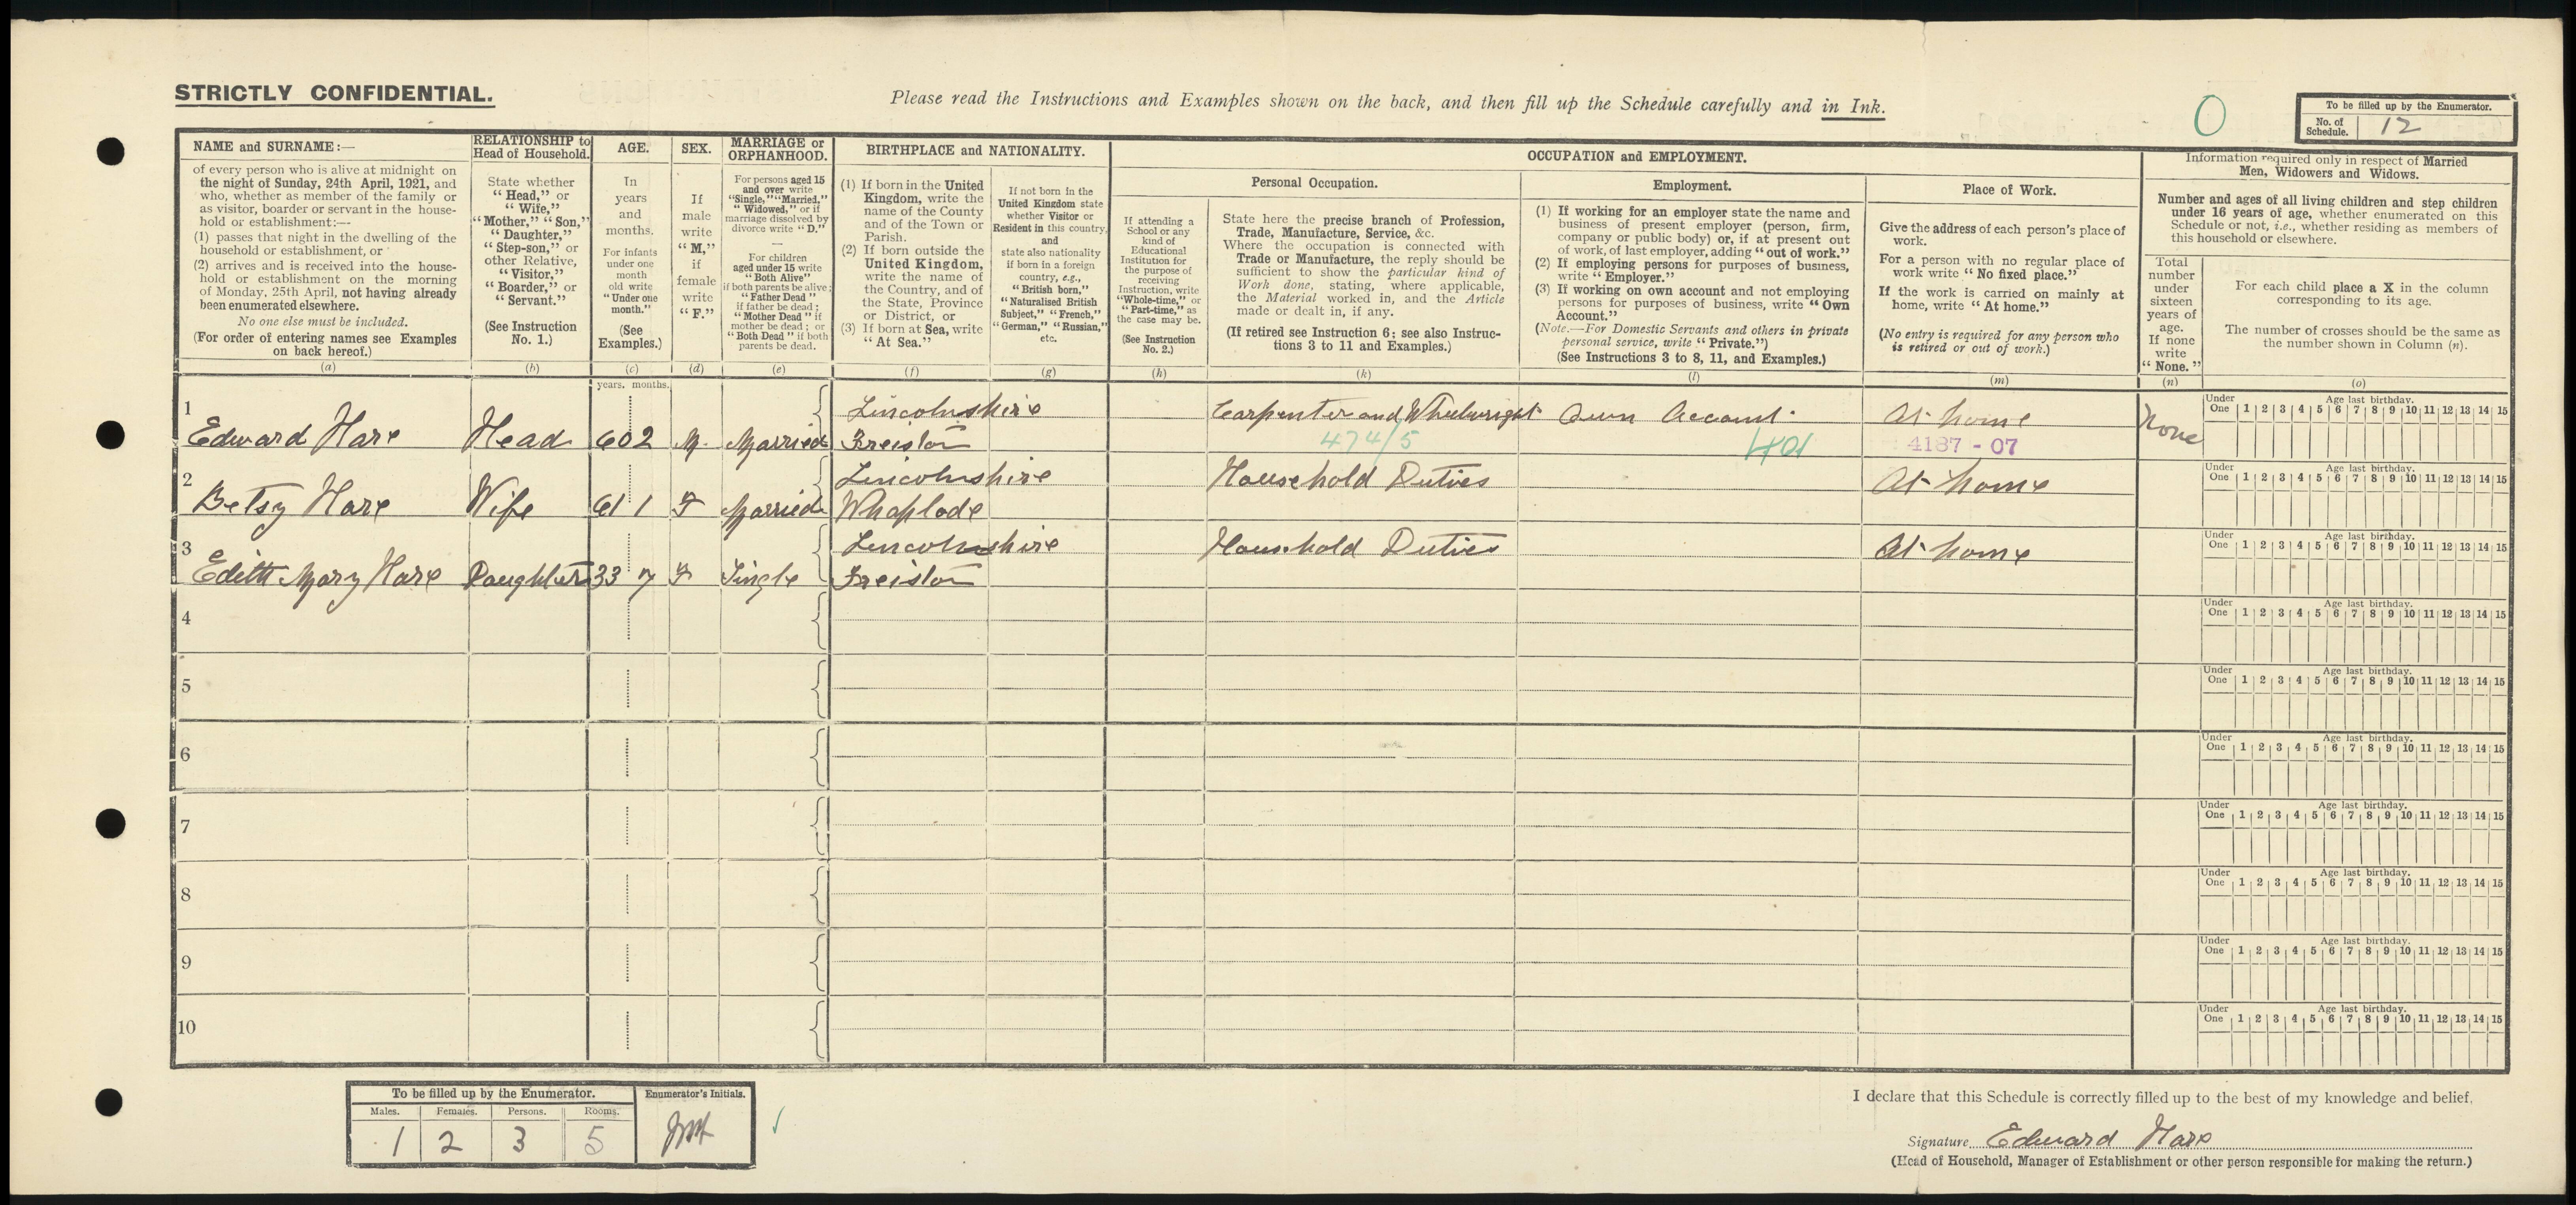 STRICTLY CONFIDENTIAL.
Please read the Instructions and Examples shown on the back, and then fill up the Schedule carefully and in Ink.
0
To be filled up by the Enumerator.
No. of Schedule. 12
NAME and SURNAME:—
of every person who is alive at midnight on
the night of Sunday, 24th April, 1921, and
who, whether as member of the family or
as visitor, boarder or servant in the house-
hold or establishment:—
(1) passes that night in the dwelling of the
household or establishment, or
(2) arrives and is received into the house-
hold or establishment on the morning
of Monday, 25th April, not having already
been enumerated elsewhere.
No one else must be included.
(For order of entering names see Examples
on back hereof.)
(a)
RELATIONSHIP to
Head of Household.
State whether
"Head," or
"Wife,"
"Mother," "Son,"
"Daughter,"
"Step-son," or
other Relative,
"Visitor,"
"Boarder," or
"Servant."
(See Instruction
No. 1.)
(b)
AGE.
In
years
and
months.
For infants
under one
month
old write
"Under one
month."
(See
Examples.)
(c)
SEX.
If
male
write
"M,"
if
female
write
"F."
(d)
MARRIAGE or
ORPHANHOOD.
For persons aged 15
and over write
"Single," "Married,"
"Widowed," or if
marriage dissolved by
divorce write "D."
—
For children
aged under 15 write
"Both Alive"
if both parents be alive;
"Father Dead"
if father be dead;
"Mother Dead" if
mother be dead; or
"Both Dead" if both
parents be dead.
(e)
BIRTHPLACE and NATIONALITY.
(1) If born in the United
Kingdom, write the
name of the County
and of the Town or
Parish.
(2) If born outside the
United Kingdom,
write the name of
the Country, and of
the State, Province
or District, or
(3) If born at Sea, write
"At Sea."
(f)
If not born in the
United Kingdom state
whether Visitor or
Resident in this country,
and
state also nationality
if born in a foreign
country, e.g.,
"British born,"
"Naturalised British
Subject," "French,"
"German," "Russian,"
etc.
(g)
OCCUPATION and EMPLOYMENT.
If attending a
School or any
kind of
Educational
Institution for
the purpose of
receiving
Instruction, write
"Whole-time," or
"Part-time," as
the case may be.
(See Instruction
No. 2.)
(h)
Personal Occupation.
State here the precise branch of Profession,
Trade, Manufacture, Service, &c.
Where the occupation is connected with
Trade or Manufacture, the reply should be
sufficient to show the particular kind of
Work done, stating, where applicable,
the Material worked in, and the Article
made or dealt in, if any.
(If retired see Instruction 6; see also Instruc-
tions 3 to 11 and Examples.)
(k)
Employment.
(1) If working for an employer state the name and
business of present employer (person, firm,
company or public body) or, if at present out
of work, of last employer, adding "out of work."
(2) If employing persons for purposes of business,
write "Employer."
(3) If working on own account and not employing
persons for purposes of business, write "Own
Account."
(Note.—For Domestic Servants and others in private
personal service, write "Private.")
(See Instructions 3 to 8, 11, and Examples.)
(l)
Place of Work.
Give the address of each person's place of
work.
For a person with no regular place of
work write "No fixed place."
If the work is carried on mainly at
home, write "At home."
(No entry is required for any person who
is retired or out of work.)
(m)
Information required only in respect of Married
Men, Widowers and Widows.
Number and ages of all living children and step children
under 16 years of age, whether enumerated on this
Schedule or not, i.e., whether residing as members of
this household or elsewhere.
Total
number
under
sixteen
years of
age.
If none
write
"None."
(n)
For each child place a X in the column
corresponding to its age.
The number of crosses should be the same as
the number shown in Column (n).
(o)
years. months.
1 Edward Hare Head 60 2 M. Married Lincolnshire Freiston Carpenter and Wheelwright Own Account. At home None
474/5 401 4187 - 07
Under One Age last birthday. 1 2 3 4 5 6 7 8 9 10 11 12 13 14 15
2 Betsy Hare Wife 61 1 F Married Lincolnshire Whaplode Household Duties At home
Under One Age last birthday. 1 2 3 4 5 6 7 8 9 10 11 12 13 14 15
3 Edith Mary Hare Daughter 33 7 F Single Lincolnshire Freiston Household Duties At home
Under One Age last birthday. 1 2 3 4 5 6 7 8 9 10 11 12 13 14 15
4
Under One Age last birthday. 1 2 3 4 5 6 7 8 9 10 11 12 13 14 15
5
Under One Age last birthday. 1 2 3 4 5 6 7 8 9 10 11 12 13 14 15
6
Under One Age last birthday. 1 2 3 4 5 6 7 8 9 10 11 12 13 14 15
7
Under One Age last birthday. 1 2 3 4 5 6 7 8 9 10 11 12 13 14 15
8
Under One Age last birthday. 1 2 3 4 5 6 7 8 9 10 11 12 13 14 15
9
Under One Age last birthday. 1 2 3 4 5 6 7 8 9 10 11 12 13 14 15
10
Under One Age last birthday. 1 2 3 4 5 6 7 8 9 10 11 12 13 14 15
To be filled up by the Enumerator.
Males. Females. Persons. Rooms.
1 2 3 5
Enumerator's Initials.
I declare that this Schedule is correctly filled up to the best of my knowledge and belief.
Signature Edward Hare
(Head of Household, Manager of Establishment or other person responsible for making the return.)